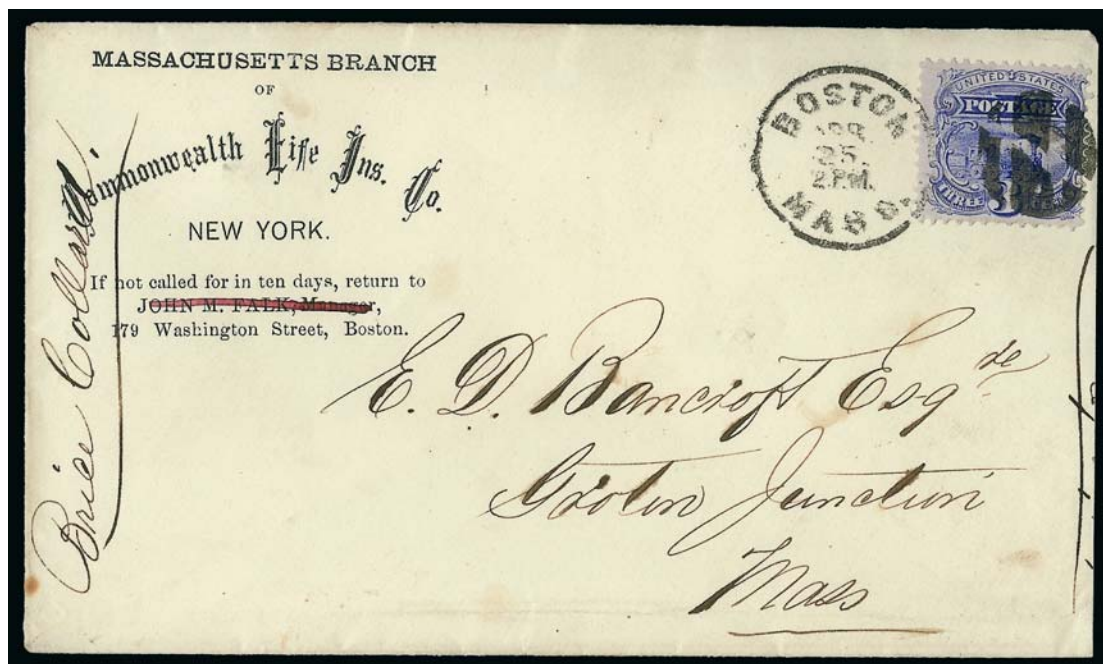 MASSACHUSETTS BRANCH
OF
Commonwealth Life Ins. Co.
NEW YORK.
If not called for in ten days, return to
JOHN M. FALK, Manager,
179 Washington Street, Boston.
Brice Collard,
BOSTON
APR.
25.
2 P.M.
MASS.
UNITED STATES
POSTAGE
THREE 3
E. D. Bancroft Esq^re
Groton Junction
Mass